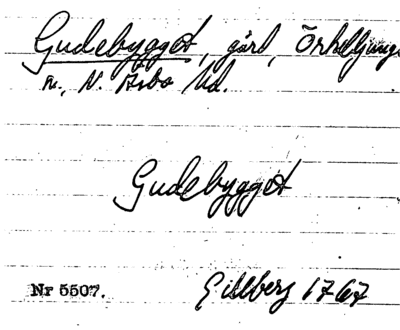 Gudebygget, gård, Örkeljunga
n., N. Åsbo hd.
Gudebygget
Nr 5507.
Gillberg 1767